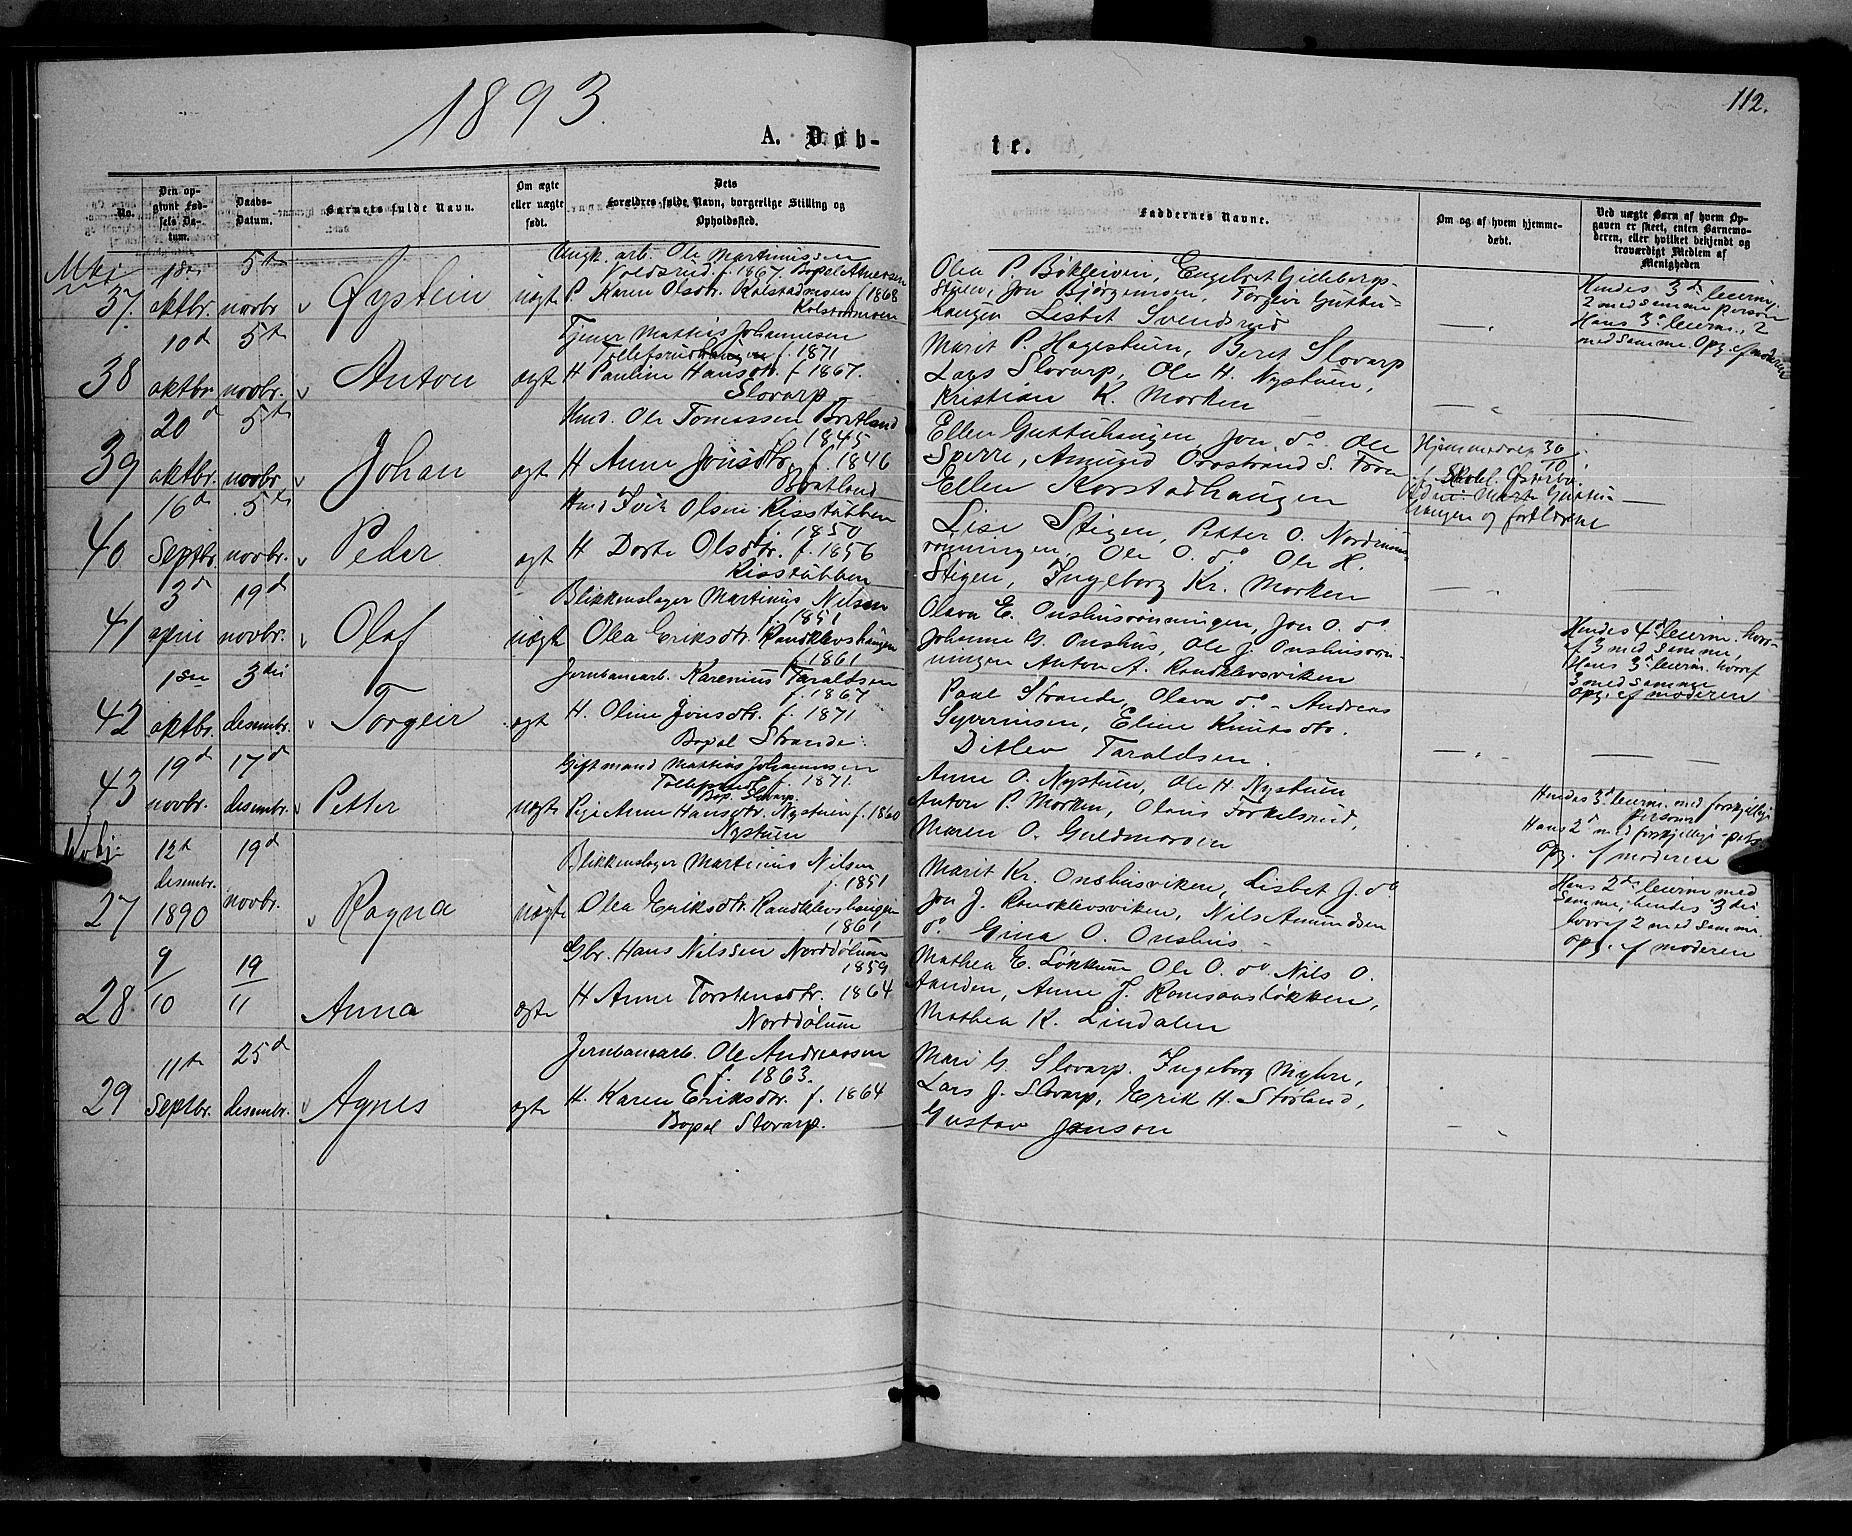 1893.
112.
A. Døb-
te.
No.
Den opgivne Fødsels Datum.
Daabs-Datum.
Barnets fulde Navn.
Om ægte eller uægte født.
Dets Forældres fulde Navn, borgerlige Stilling og Opholdssted.
Faddernes Navne.
Om og af hvem hjemmedøbt.
Ved uægte Børn af hvem Opgaven er skeet, enten Barnemoderen, eller hvilket bekjendt og troværdigt Medlem af Menigheden
Mkj
37. 18de oktbr. 5te novbr. Øystein uægte
Ungk. arb. Ole Martinussen
Voldsrud f. 1867. Bopel
P. Karen Olsdtr. Kolstadmoen f 1868
Kolstadmoen
Olea P. Bøkleiven, Engebret Gillebergs-
stuen, Jon Bjørgemoen, Torgeir Guttu-
haugen Lisbet Svendsrud
Hendes 3d leierm.
2 med samme person
Hans 3d leierm., 2
med samme. Opg. af moderen
38 10d oktbr. 5te novbr. Anton ægte
Tjener Mathis Johannesen
Tollefsrudhaugen f. 1871
H Pauline Hansdtr. f 1867.
Slovarp
Marit P. Hagestuen, Beret Slovarp
Lars Slovarp, Ole H. Nystuen,
Kristian K. Morken
39 20d oktbr. 5te novbr. Johan ægt
Husmd. Ole Tomassen Bratland
f. 1845
H Anne Jonsdtr. f. 1846
Bratland
Ellen Guttuhaugen, Jon do Ole
Sperre, Amund S. Tron
Ellen Korstadhaugen
Hjemmedøbt 30/10
Skoleh. Østerbø.
Marte Guttu-
haugen og forældrene
40 16d Septbr. 5te novbr. Peder ægt
Husmd Olsen Risstubben
f. 1850
H Dorte Olsdtr. f. 1856
Risstubben
Lise Stigen, Petter O. Nordrum-
rønningen, Ole O. do Ole H.
Stigen, Ingeborg Kr. Morken
41 3d april 19d novbr. Olaf uægte
Blikkenslager Martinus Nilsen
f. 1851
Olea Eriksdtr. Randklevshaugen
f. 1861
Olava E. Onshusrønningen, Jon O. do
Johanne G. Onshus, Ole J. Onshusrøn-
ningen Anton A. Randklevsviken
Hendes 4d leierm. hvor-
af 3 med samme,
Hans 3d leierm. hvoraf
3 med samme
Opg. af moderen
42 1ste oktbr. 3die desembr. Torgeir ægt
Jernbanearb. Karenius Taraldsen
f. 1867
H. Oline Jonsdtr. f. 1871
Bopel Strande.
Paul Strande, Olava do - Andreas
Syverinsen, Eline Knutsdtr.
Ditlev Taraldsen.
43 19d novbr. 17d desembr. Petter uægte
Giftmand Mathias Johannesen
Tollefsrud f. 1871.
Bop. Slovarp.
Pige Anne Hansdtr. Nystuen f. 1860
Nystuen
Anne O. Nystuen, Ole H Nystuen
Anton P. Morken, Olaus Torkelsrud,
Maren O. Guldmoroen
Hendes 3d leierm. med forskjellige
personer
Hans 2d med forskjellige pers.
Opg. af moderen
27 12te desembr. 1890 19d novbr. Ragna uægte
Blikkenslager Martinus Nilsen
f. 1851
Olea Eriksdtr. Randklevshaugen
1861
Marit Kr. Onshusviken, Lisbet J. do
Jon J. Randklevsviken, Nils Amundsen
do. Gina O. Onshus
Hans 2de leierm med
samme, hendes 3die
hvoraf 2 med samme.
Opg. af moderen
28 9/10 19/11 Anna ægte
Gbr. Hans Nilssen Norddølum
1859
H Anne Torstensdtr. 1864
Norddølum
Mathea E. Løkkum Ole O. do Nils O.
Aanden, Anne J. Romsaasløkken,
Mathea K. Lindalen
29 11te Septbr. 25d desembr. Agnes ægte
Jernbanearb. Ole Andreassen
f. 1863.
H. Karen Eriksdtr. f. 1864
Bopel Slovarp.
Mari G Slovarp. Ingeborg Myhre,
Lars J. Slovarp, Erik H. Størlund,
Gustav Janson